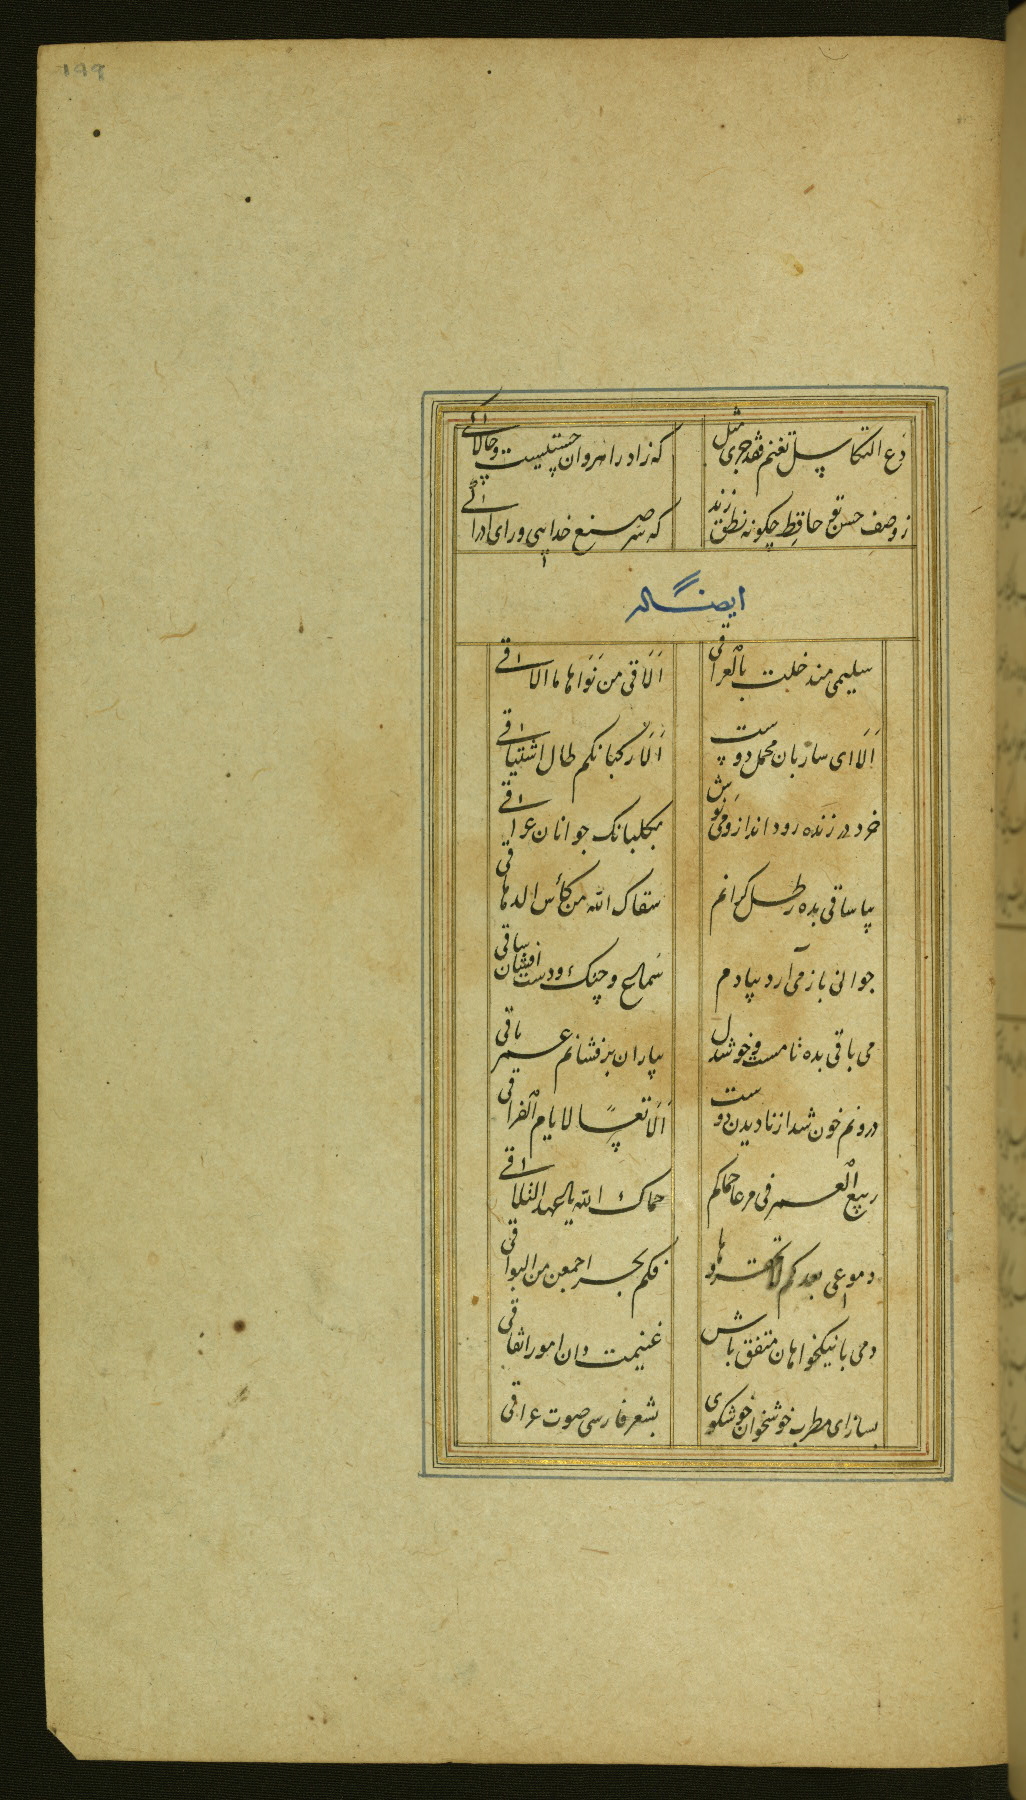 ۱۹۹
دع التکاسل تغنم فقد جری مثل
که زاد راهروان چستیست و چالاکی
ز وصف حسن تو حافظ چکونه نطق زند
که سر صنع خدایی ورای ادراکی
ایضا له
سلیمی منذ حلت بالعراق
الاقی من نواها ما الاقی
الا ای ساربان محمل دوست
الا رکبانکم طال اشتیاقی
خرد در زنده رود انداز و می نوش
بکلبانک جوانان عراقی
بیا ساقی بده رطل کرانم
سقاک الله من کأس الدهاقی
جوانی باز می آرد بیادم
سماع و چنک و دست افشان ساقی
می باقی بده تا مست و خوشدل
بیاران برفشانم عمر باقی
درونم خون شد از نادیدن دوست
الا تعسا لایام الفراقی
ربیع العمر فی مرعا حماکم
حماک الله یا عهد التلاقی
دموعی بعدکم لا تحقروها
فکم بحر اجمعن من البواقی
دمی با نیکخواهان متفق باش
غنیمت دان امور اتفاقی
بساز ای مطرب خوشخوان خوشکوی
بشعر فارسی صوت عراقی